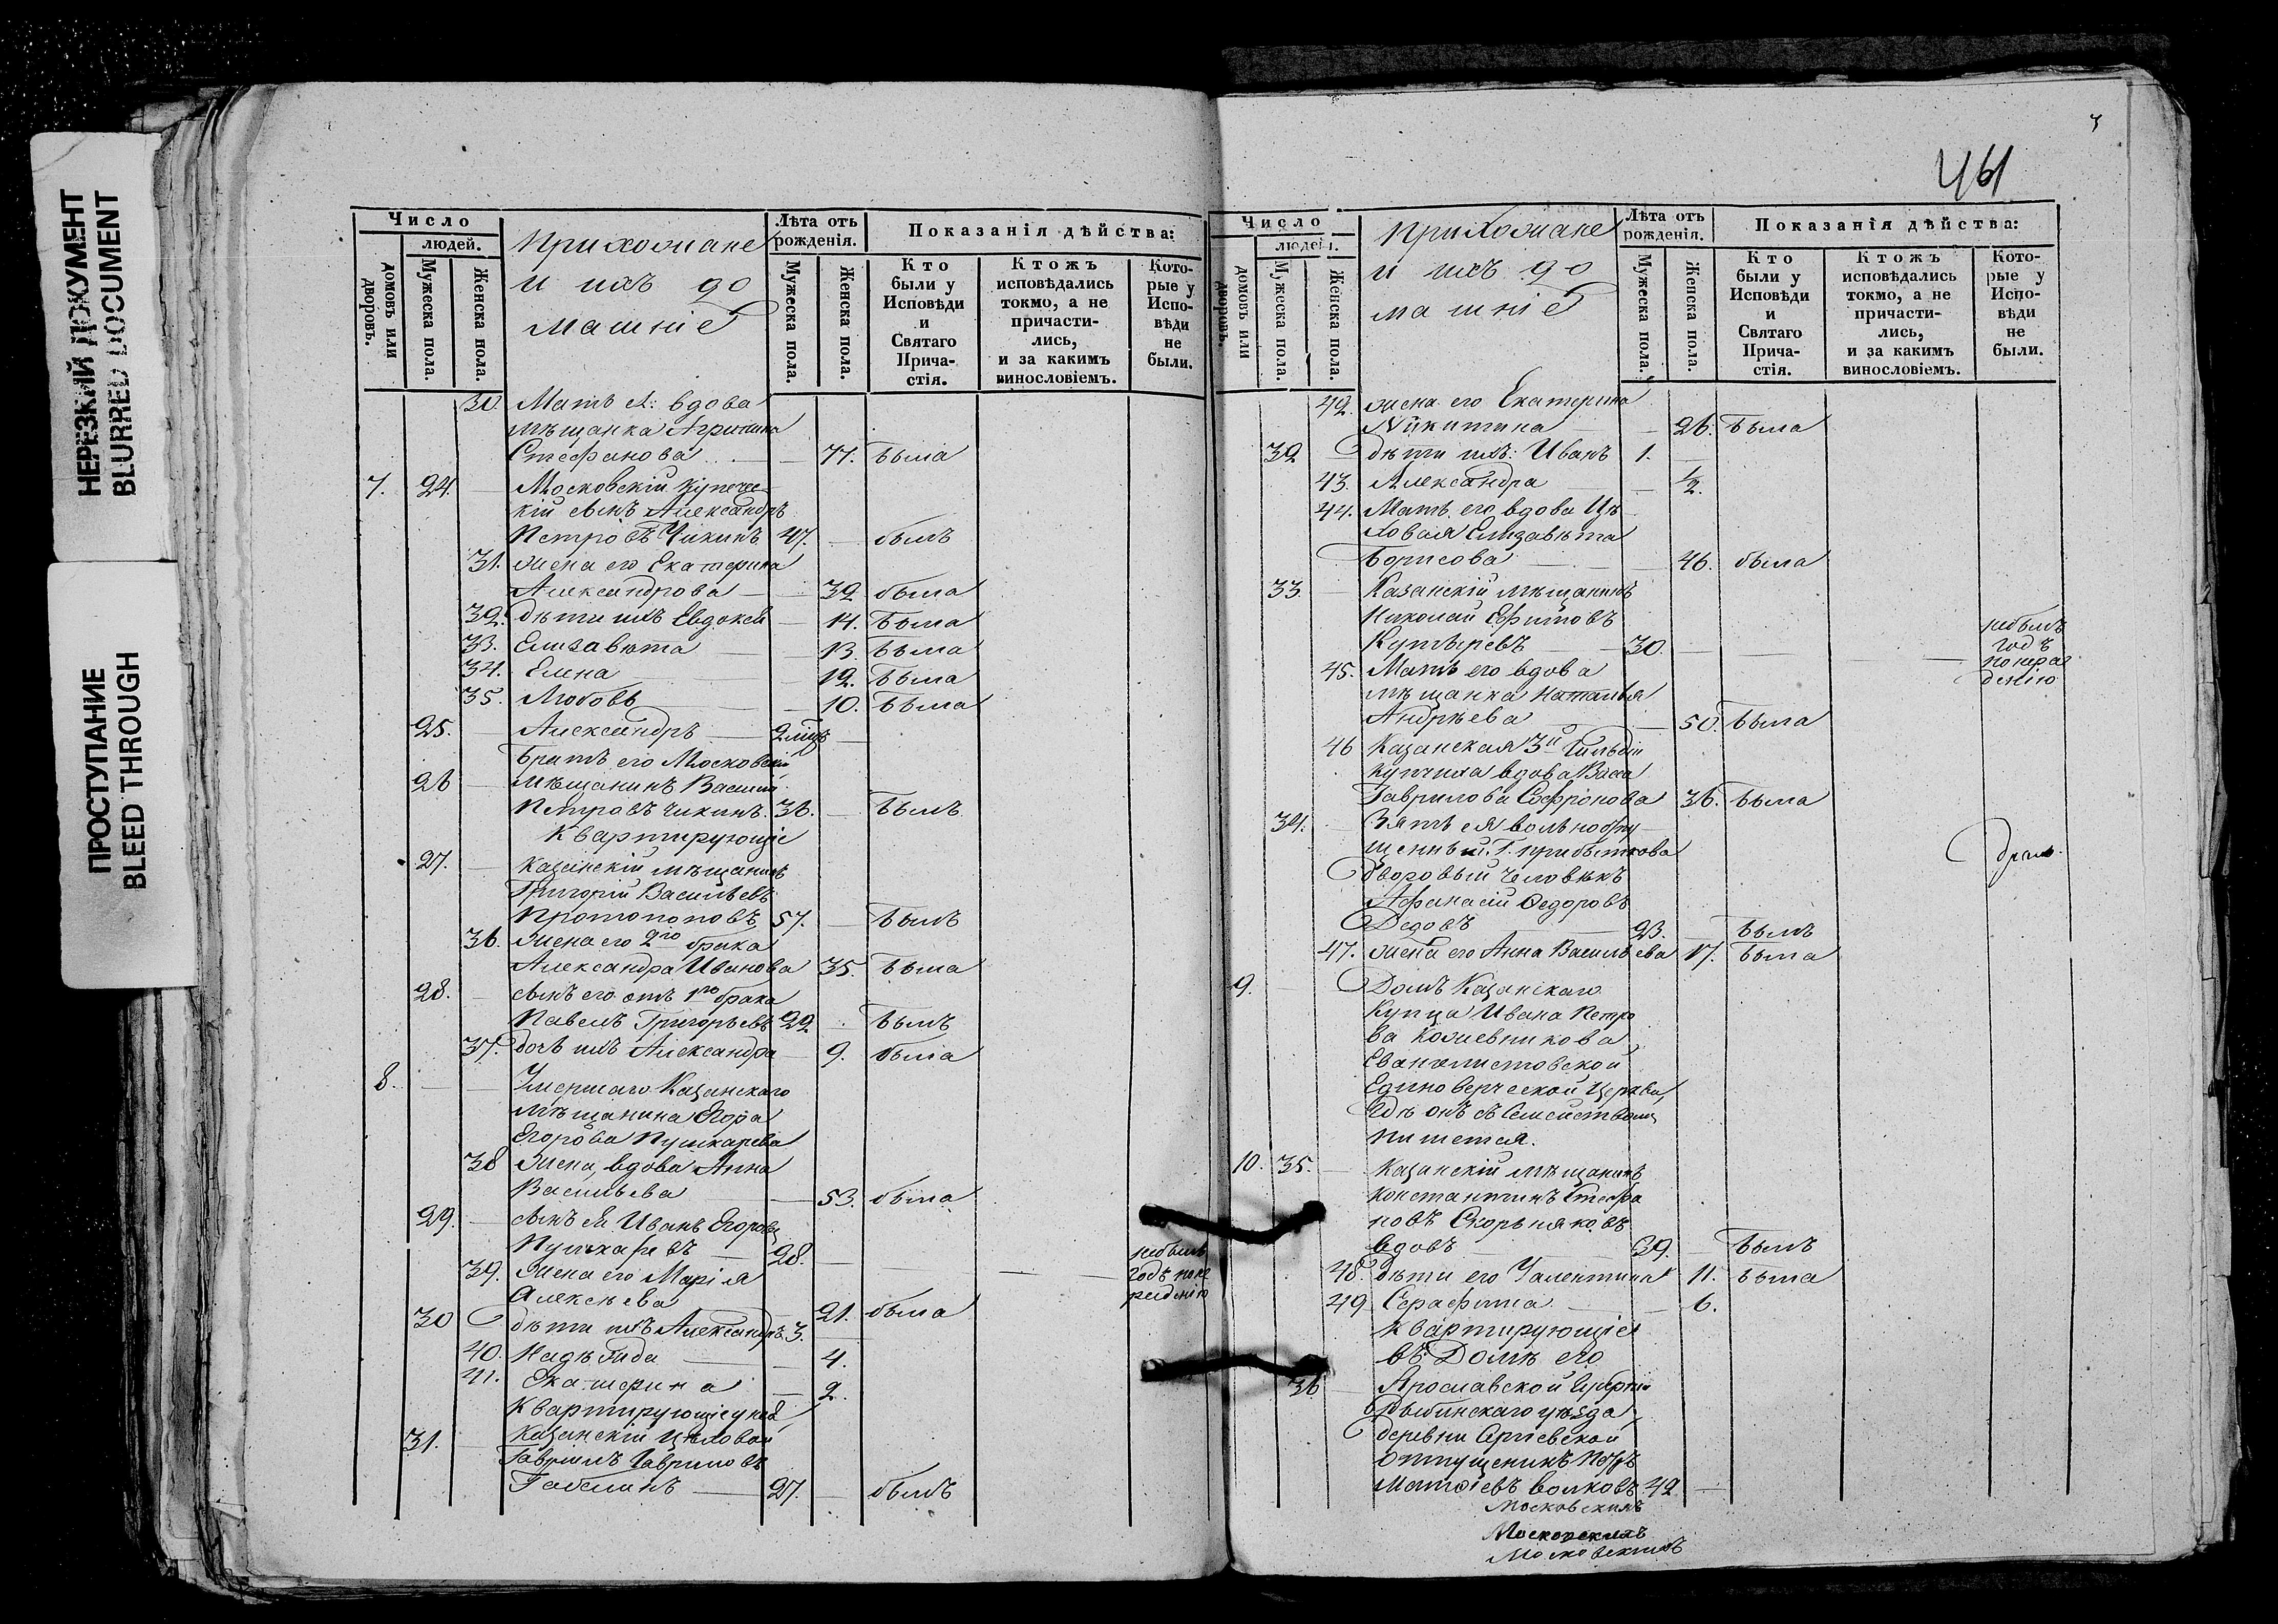 НЕРЕЗКИЙ ДОКУМЕНТ
BLURRED DOCUMENT
ПРОСТУПАНИЕ
BLEED THROUGH
Число
людей.
домовъ или дворовъ.
Мужеска пола.
Женска пола.
Прихожане
и ихъ до
машніе
Лѣта отъ рожденія.
Мужеска пола.
Женска пола.
Показанія дѣйства:
Кто были у Исповѣди и Святаго Прича-стія.
Ктожъ исповѣдались токмо, а не причасти-лись, и за какимъ винословіемъ.
Кото-рые у Испо-вѣди не были.
30. Мать ея: вдова
мѣщанка Агрипина
Стефанова 77. была
7. 24. Московскій купечес
кій сынъ Александръ
Петровъ Чикинъ 47. былъ
31. жена его Екатерина
Александрова 39 была
32. дѣти ихъ Евдокея 14. была
33. Елизавѣта 13. была
34. Елена 12. была
35. Любовь 10. была
25. Александръ
Братъ его Московскій
26 мѣщанинъ Василій
Петровъ Чикинъ. 36. былъ
Квартирующіе
27. Казанскій мѣщанинъ
Григорій Васильевъ
Протопоповъ 57. былъ
36. Жена его 2го брака
Александра Иванова 35. была
28. сынъ его отъ 1го брака
Павелъ Григорьевъ 22 былъ
37. дочь ихъ Александра 9. была
8. Умершаго Казанскаго
мѣщанина Егора
Егорова Пушкарева
38 Жена, вдова Анна
Васильева 53. была
29. сынъ ея Иванъ Егоровъ
Пушкаревъ 28. небылъ
39. Жена его Марія годъ поне
Алексѣева 21. была
30 дѣти ихъ Александръ 3.
40. Надежда 4.
41. Екатерина 2.
Квартирующіе у ней
31. Казанскій цѣховой
Гаврилъ Гавриловъ
27. былъ
461
Число
людей.
домовъ или дворовъ.
Мужеска пола.
Женска пола.
Прихожане
и ихъ до
машніе
Лѣта отъ рожденія.
Мужеска пола.
Женска пола.
Показанія дѣйства:
Кто были у Исповѣди и Святаго Прича-стія.
Ктожъ исповѣдались токмо, а не причасти-лись, и за какимъ винословіемъ.
Кото-рые у Испо-вѣди не были.
42. жена его Екатерина
Никитина 26. была
32 дѣти ихъ: Иванъ 1.
43. Александра 1/2.
44. Мать его вдова Цѣ
ховая Елизавѣта
Борисова 46. была
33. Казанскій мѣщанинъ
Николай Ефимовъ
30. небылъ
годъ
45. Мать его вдова понера
мѣщанка Наталья дѣнію
Андрѣева 50. была
46 Казанская 3й Гильдіи
купчиха вдова Васса
Гаврилова Софронова 36. была
34. Зять ея вольноотпу
щенный Г. Прибыткова
дворовый человѣкъ
Афанасій Федоровъ
Дедовъ 23. былъ
47. жена его Анна Васильева 17. была
9. Домъ Казанскаго
Купца Ивана Петро
ва Кожевникова
Евангелистовской
Единоверческой Церкви,
гдѣ онъ съ Семействомъ
пишется.
10. 35. Казанскій мѣщанинъ
Константинъ Стефа
новъ Скорняковъ
вдовъ 39. былъ
48. дѣти его Валентина 11. была
49 Серафима 6.
Квартирующіе
въ Домѣ его
36 Ярославской Губерніи
Рыбинскаго уѣзда
деревни
отпущенникъ Петръ
Матвіевъ Волковъ 42
Московскихъ
Московскихъ
Московскихъ